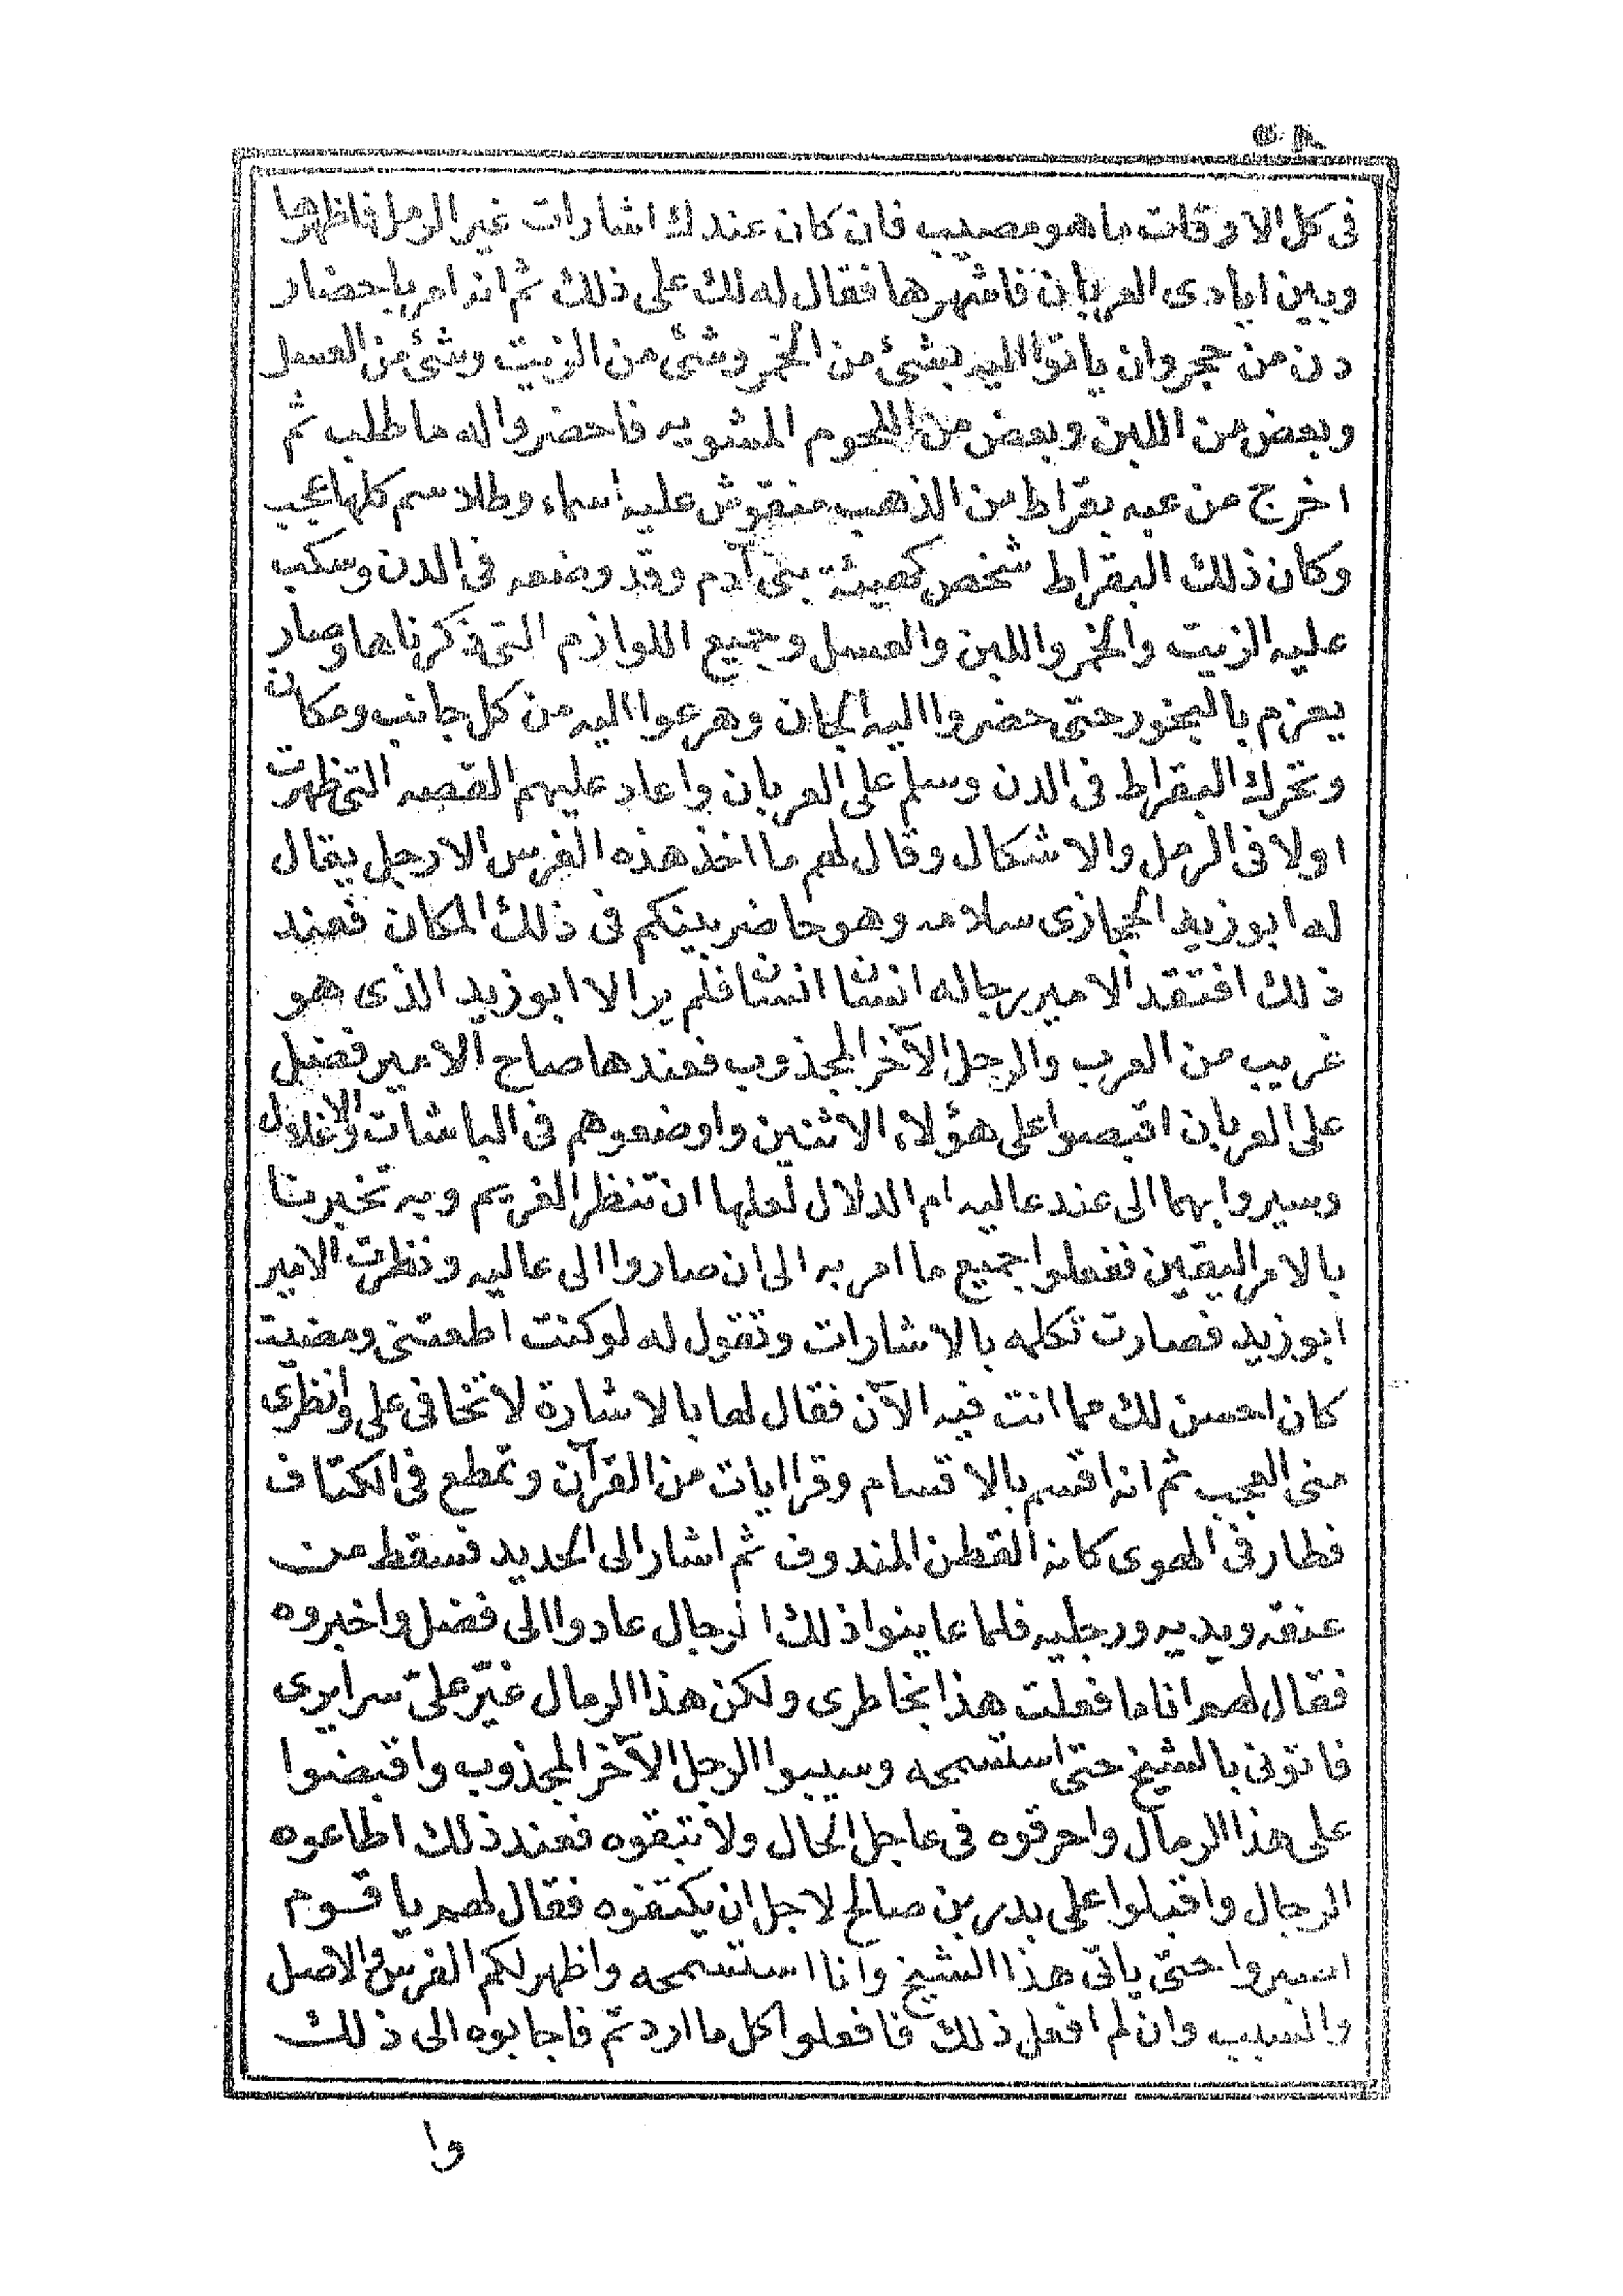 ٥٨
فى كل الاوقات ما هو مصيب فان كان عندك اشارات غير الرمل فاظهرها
وبين ايادى العربان فاشهرها فقال له لك على ذلك ثم انه امر باحضار
دن من حجر وان ياتوا اليه بشئ من الخمر وشئ من الزيت وشئ من العسل
وبعض من اللبن وبعض من اللحوم المشويه فاحضروا له ما طلب ثم
اخرج من عبه بقراط من الذهب منقوش عليه اسماء وطلاسم كلها عجب
وكان ذلك البقراط شخص كهيئة بنى آدم وقد وضعه فى الدن وسكب
عليه الزيت والخمر واللبن والعسل وجميع اللوازم التى ذكرناها وصار
يعزم بالبخور حتى حضروا اليه الجان وهرعوا اليه من كل جانب ومكان
وتحرك البقراط فى الدن وسلم على العربان واعاد عليهم القصه التى ظهرت
اولا فى الرمل والاشكال وقال لهم ما اخذ هذه الفرس الا رجل يقال
له ابو زيد الحجازى سلامه وهو حاضر بينكم فى ذلك المكان فعند
ذلك افتقد الامير رجاله انسانا انسانا فلم ير الا ابو زيد الذى هو
غريب من العرب والرجل الآخر المجذوب فعندها صاح الامير فضل
على العربان اقبضوا على هؤلاء الاثنين واوضعوهم فى الباشات والاغلال
وسيروا بهما الى عند عاليه ام الدلال لعلها ان تنظر الغريم وبه تخبرنا
بالامر اليقين ففعلوا جميع ما امر به الى ان صاروا الى عاليه ونظرت الامير
ابو زيد فصارت تكلمه بالاشارات وتقول له لو كنت اطعتنى ومضيت
كان احسن لك مما انت فيه الآن فقال لها بالاشارة لا تخافى على وانظرى
منى العجب ثم انه اقسم بالاقسام وقرا ايات من القرآن وتمطع فى الكتاف
فطار فى الهوى كانه القطن المندوف ثم اشار الى الحديد فسقط من
عنقه ويديه ورجليه فلما عاينوا ذلك الرجال عادوا الى فضل واخبروه
فقال لهم انا ما فعلت هذا بخاطرى ولكن هذا الرمال غيّر علىّ سرايرى
فاتونى بالشيخ حتى استسمحه وسيبوا الرجل الآخر المجذوب واقبضوا
على هذا الرمال واحرقوه فى عاجل الحال ولا تبقوه فعند ذلك اطاعوه
الرجال واقبلوا على بدر بن صالح لاجل ان يكتفوه فقال لهم يا قوم
اصبروا حتى ياتى هذا الشيخ وانا استسمحه واظهر لكم الفرس والاصل
والسبب وان لم افعل ذلك فافعلوا كل ما اردتم فاجابوه الى ذلك
وا